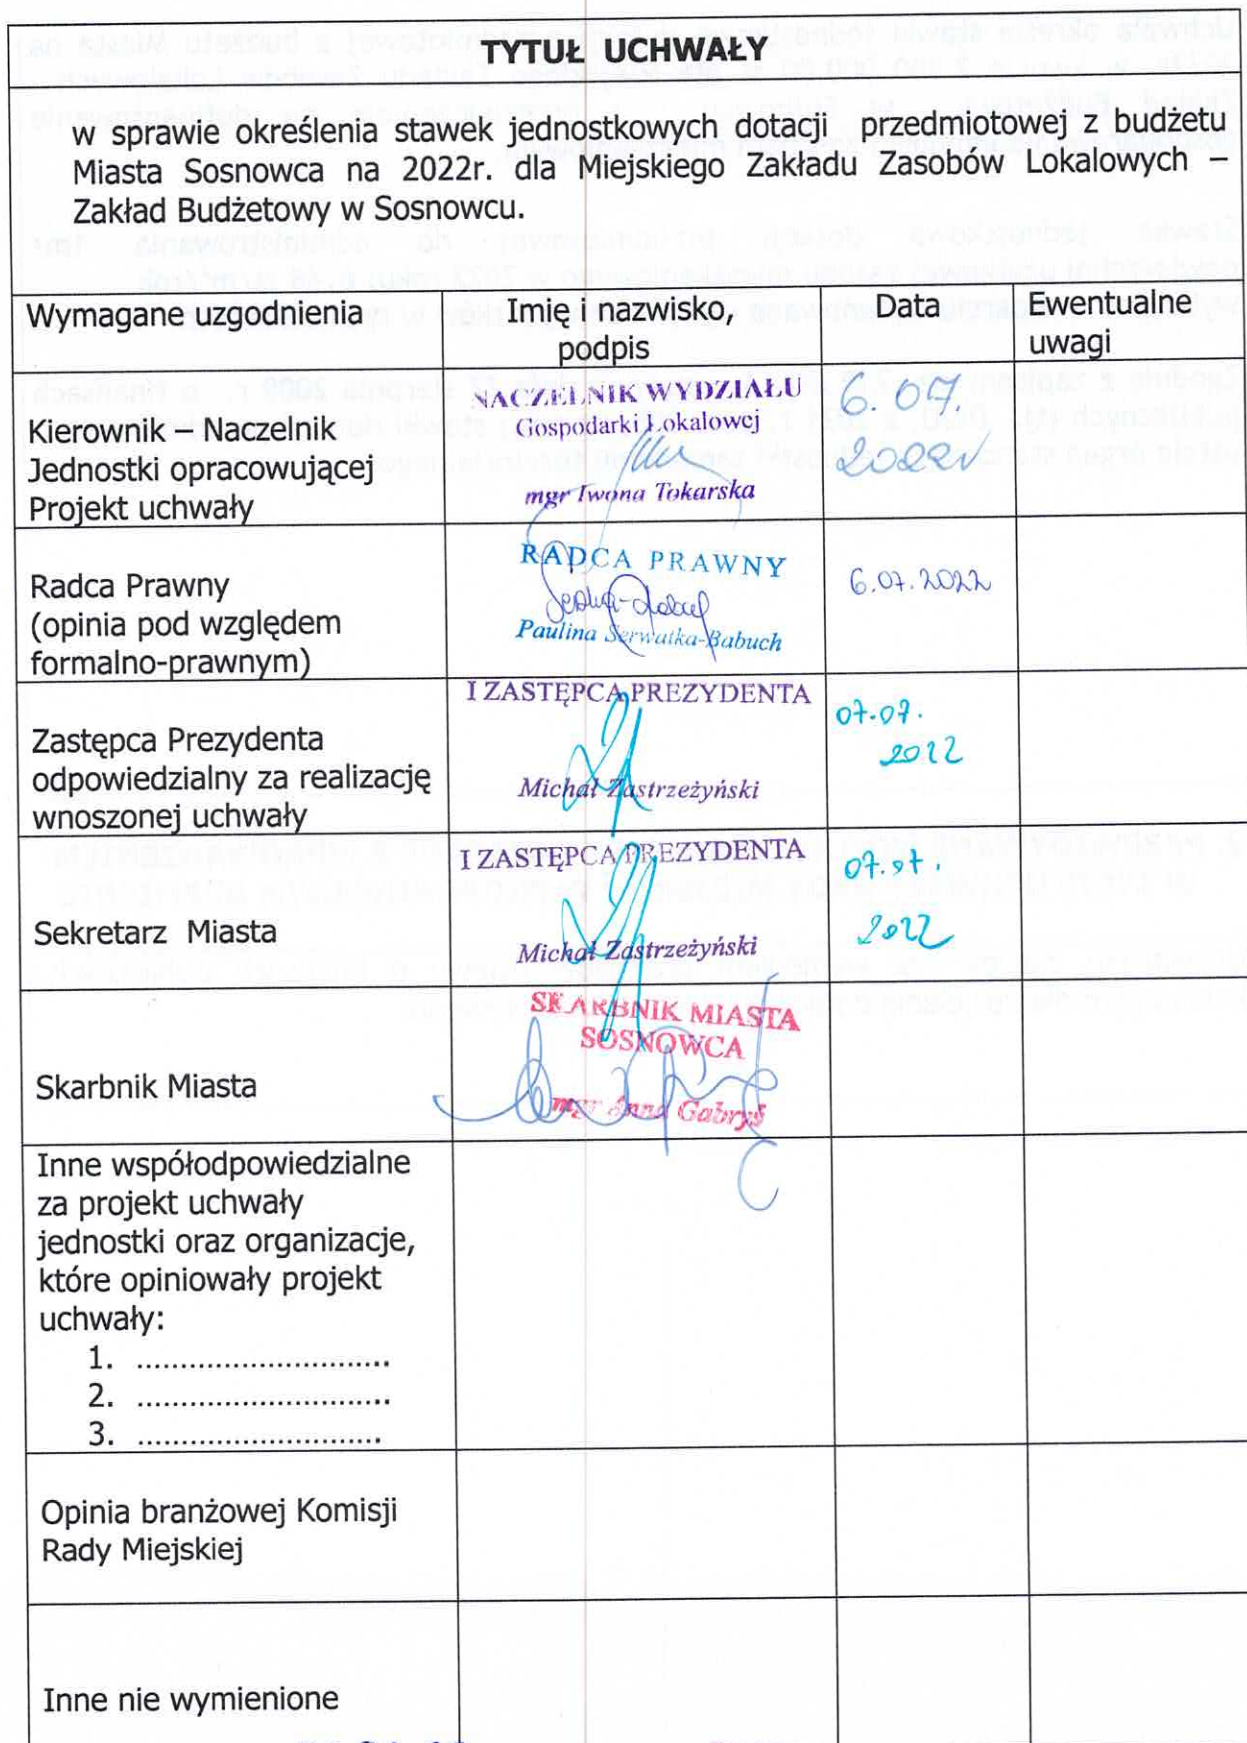 TYTUŁ UCHWAŁY
w sprawie określenia stawek jednostkowych dotacji przedmiotowej z budżetu
Miasta Sosnowca na 2022r. dla Miejskiego Zakładu Zasobów Lokalowych –
Zakład Budżetowy w Sosnowcu.
Wymagane uzgodnienia
Imię i nazwisko,
podpis
Data
Ewentualne
uwagi
Kierownik – Naczelnik
Jednostki opracowującej
Projekt uchwały
NACZELNIK WYDZIAŁU
Gospodarki Lokalowej
mgr Iwona Tokarska
6.07.
2022r
Radca Prawny
(opinia pod względem
formalno-prawnym)
RADCA PRAWNY
Paulina Serwatka-Babuch
6.07.2022
Zastępca Prezydenta
odpowiedzialny za realizację
wnoszonej uchwały
I ZASTĘPCA PREZYDENTA
Michał Zastrzeżyński
07.07.
2022
Sekretarz Miasta
I ZASTĘPCA PREZYDENTA
Michał Zastrzeżyński
07.07.
2022
Skarbnik Miasta
SKARBNIK MIASTA
SOSNOWCA
mgr Anna Gabryś
Inne współodpowiedzialne
za projekt uchwały
jednostki oraz organizacje,
które opiniowały projekt
uchwały:
1. ............................
2. ............................
3. ...........................
Opinia branżowej Komisji
Rady Miejskiej
Inne nie wymienione